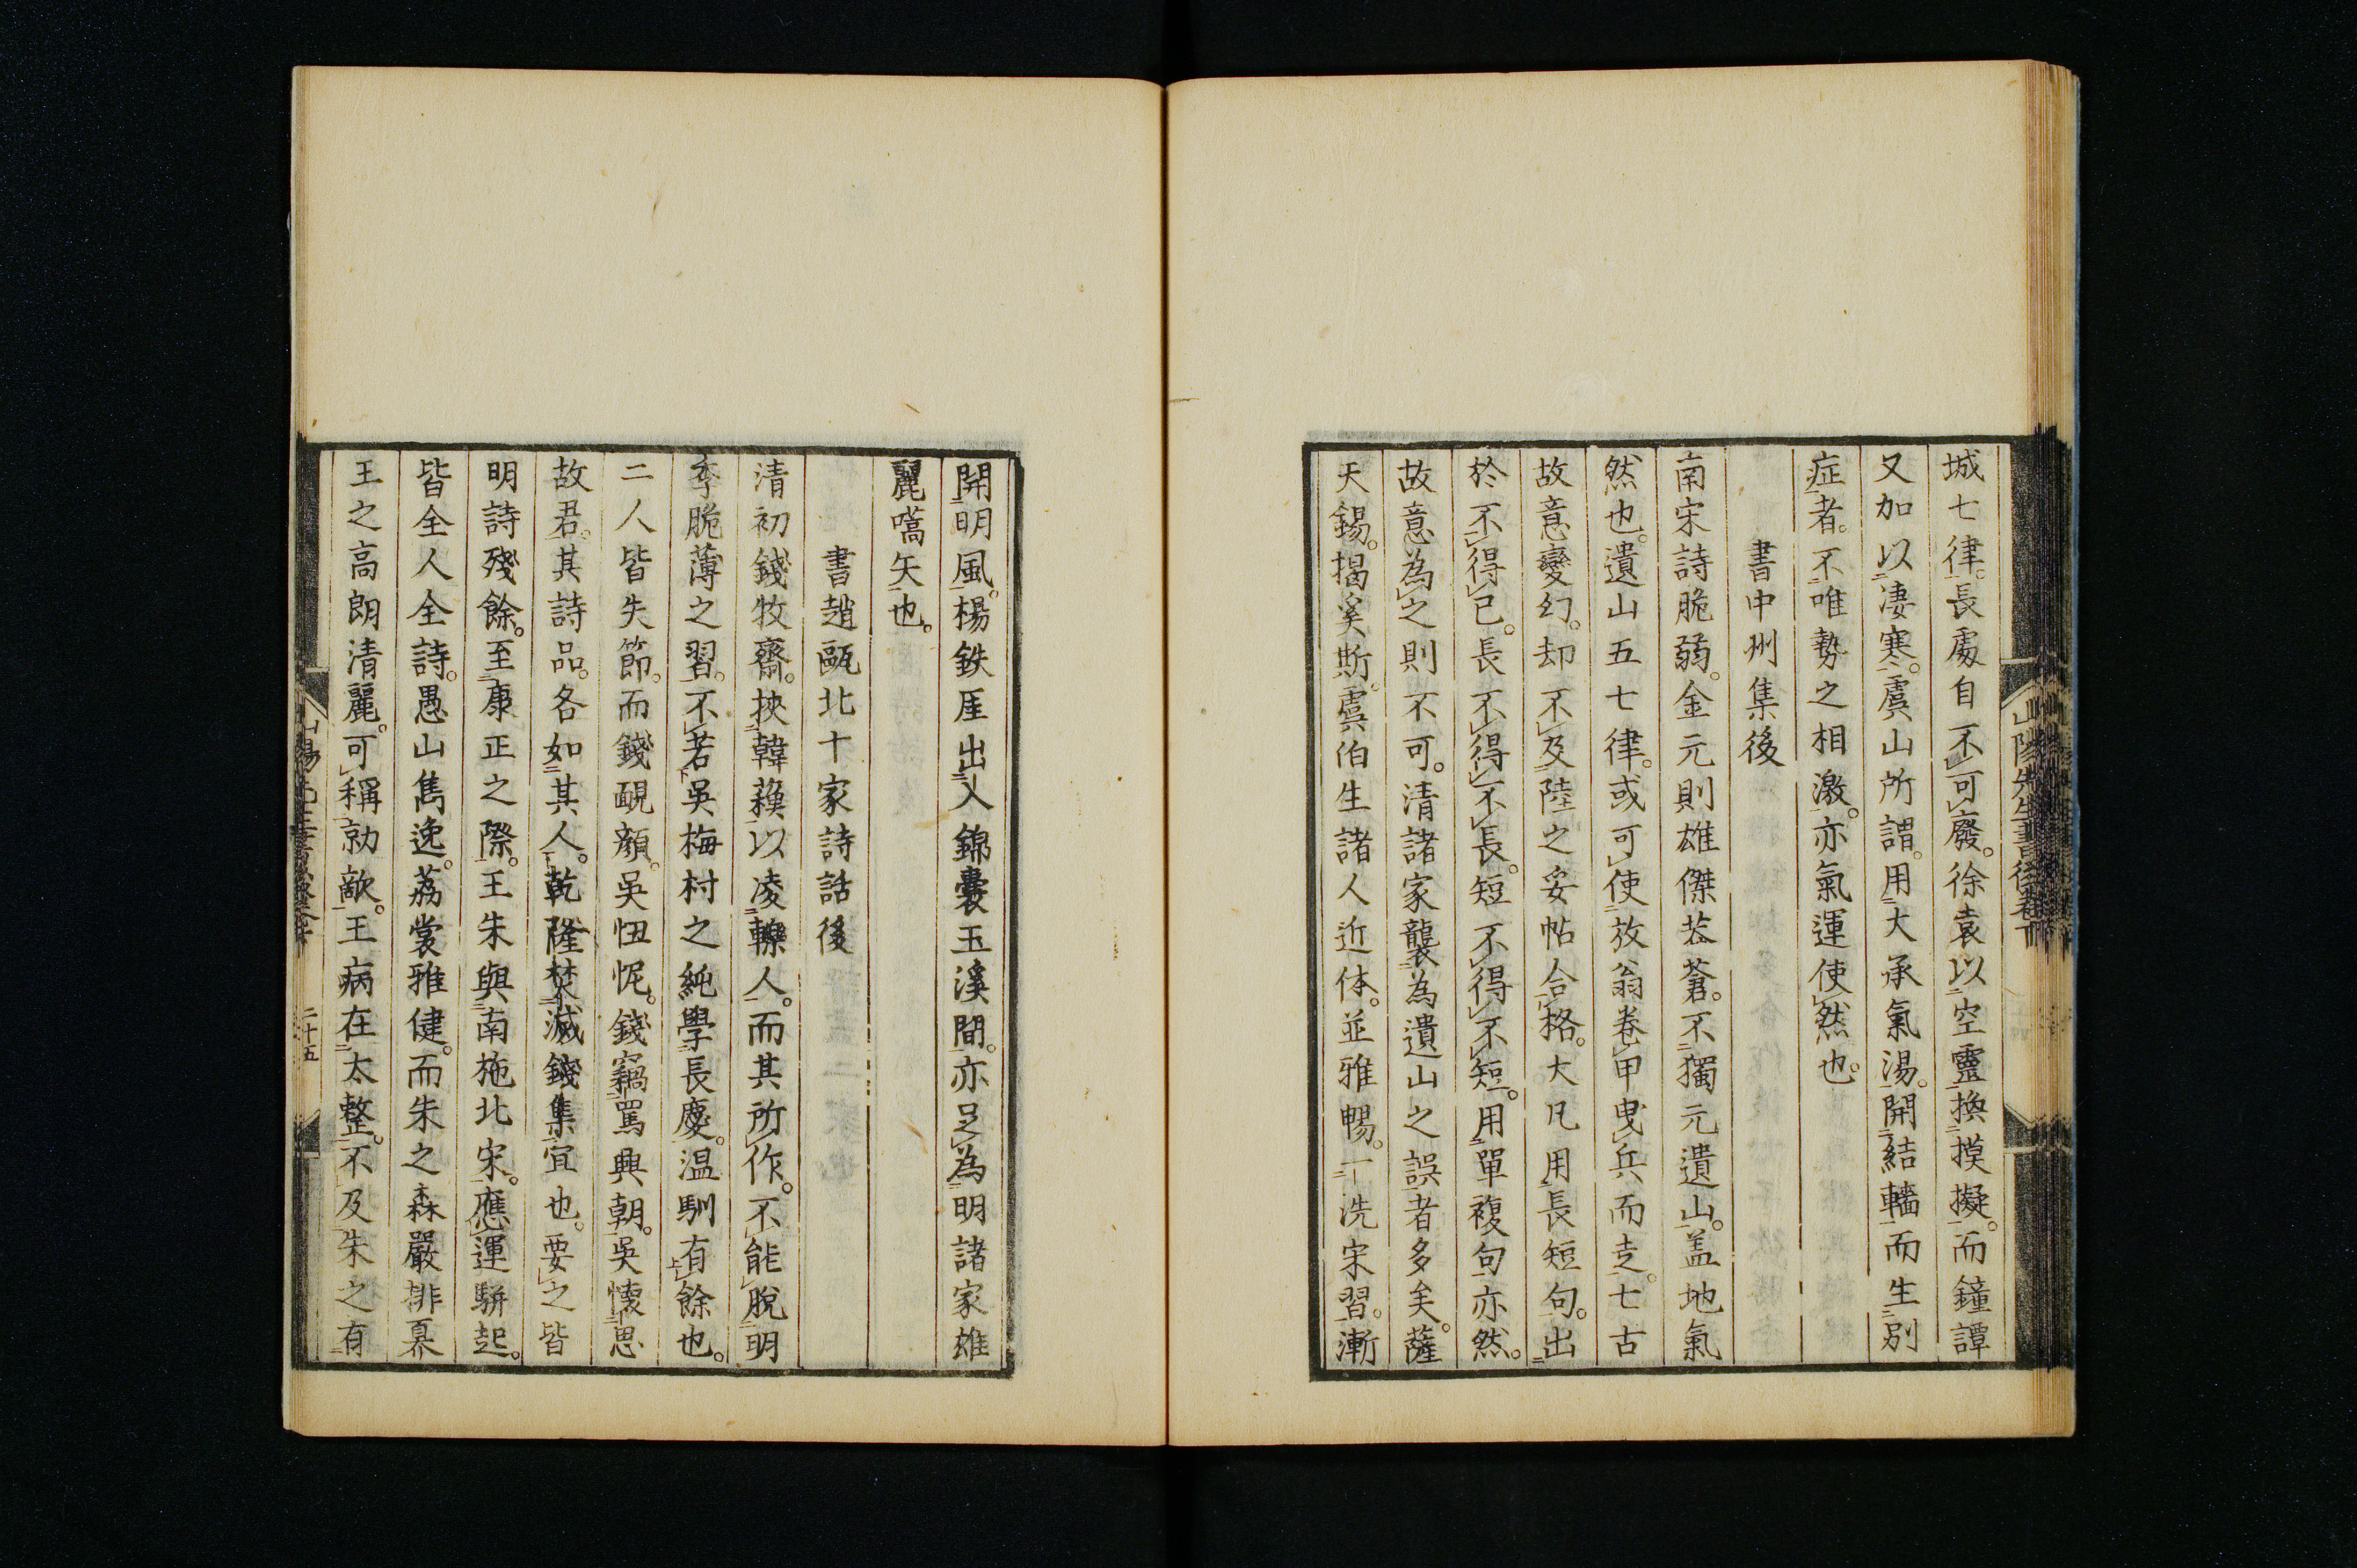 城七律。長處自不可廢。徐袁以空靈換摸擬。而鐘譚
又加以凄寒。虞山所謂。用大承氣湯。開結轖而生別
症者。不唯勢之相激。亦氣運使然也。
書中州集後
南宋詩脆弱。金元則雄傑莽蒼。不獨元遺山。盖地氣
然也。遺山五七律。或可使放翁卷甲曳兵而走。七古
故意變幻。却不及陸之妥帖合格。大凡用長短句。出
於不得已。長不得不長。短不得不短。用單複句亦然。
故意為之則不可。清諸家襲為遺山之誤者多矣。薩
天錫。揭奚斯。虞伯生諸人近体。並雅暢。一洗宋習。漸
開明風。楊鉄厓出入錦囊玉溪間。亦足為明諸家雄
麗嚆矢也。
書趙甌北十家詩話後
清初錢牧齋。挾韓蘓以凌轢人。而其所作。不能脫明
季脆薄之習。不若吳梅村之純學長慶。温馴有餘也。
二人皆失節。而錢靦顔。吳忸怩。錢竊罵興朝。吳懷思
故君。其詩品。各如其人。乾隆焚滅錢集宜也。要之皆
明詩殘餘。至康正之際。王朱與南施北宋。應運駢起。
皆全人全詩。愚山雋逸。荔裳雅健。而朱之森嚴排奡
王之高朗清麗。可稱勍敵。王病在太整。不及朱之有
山陽先生書後卷下
二十五